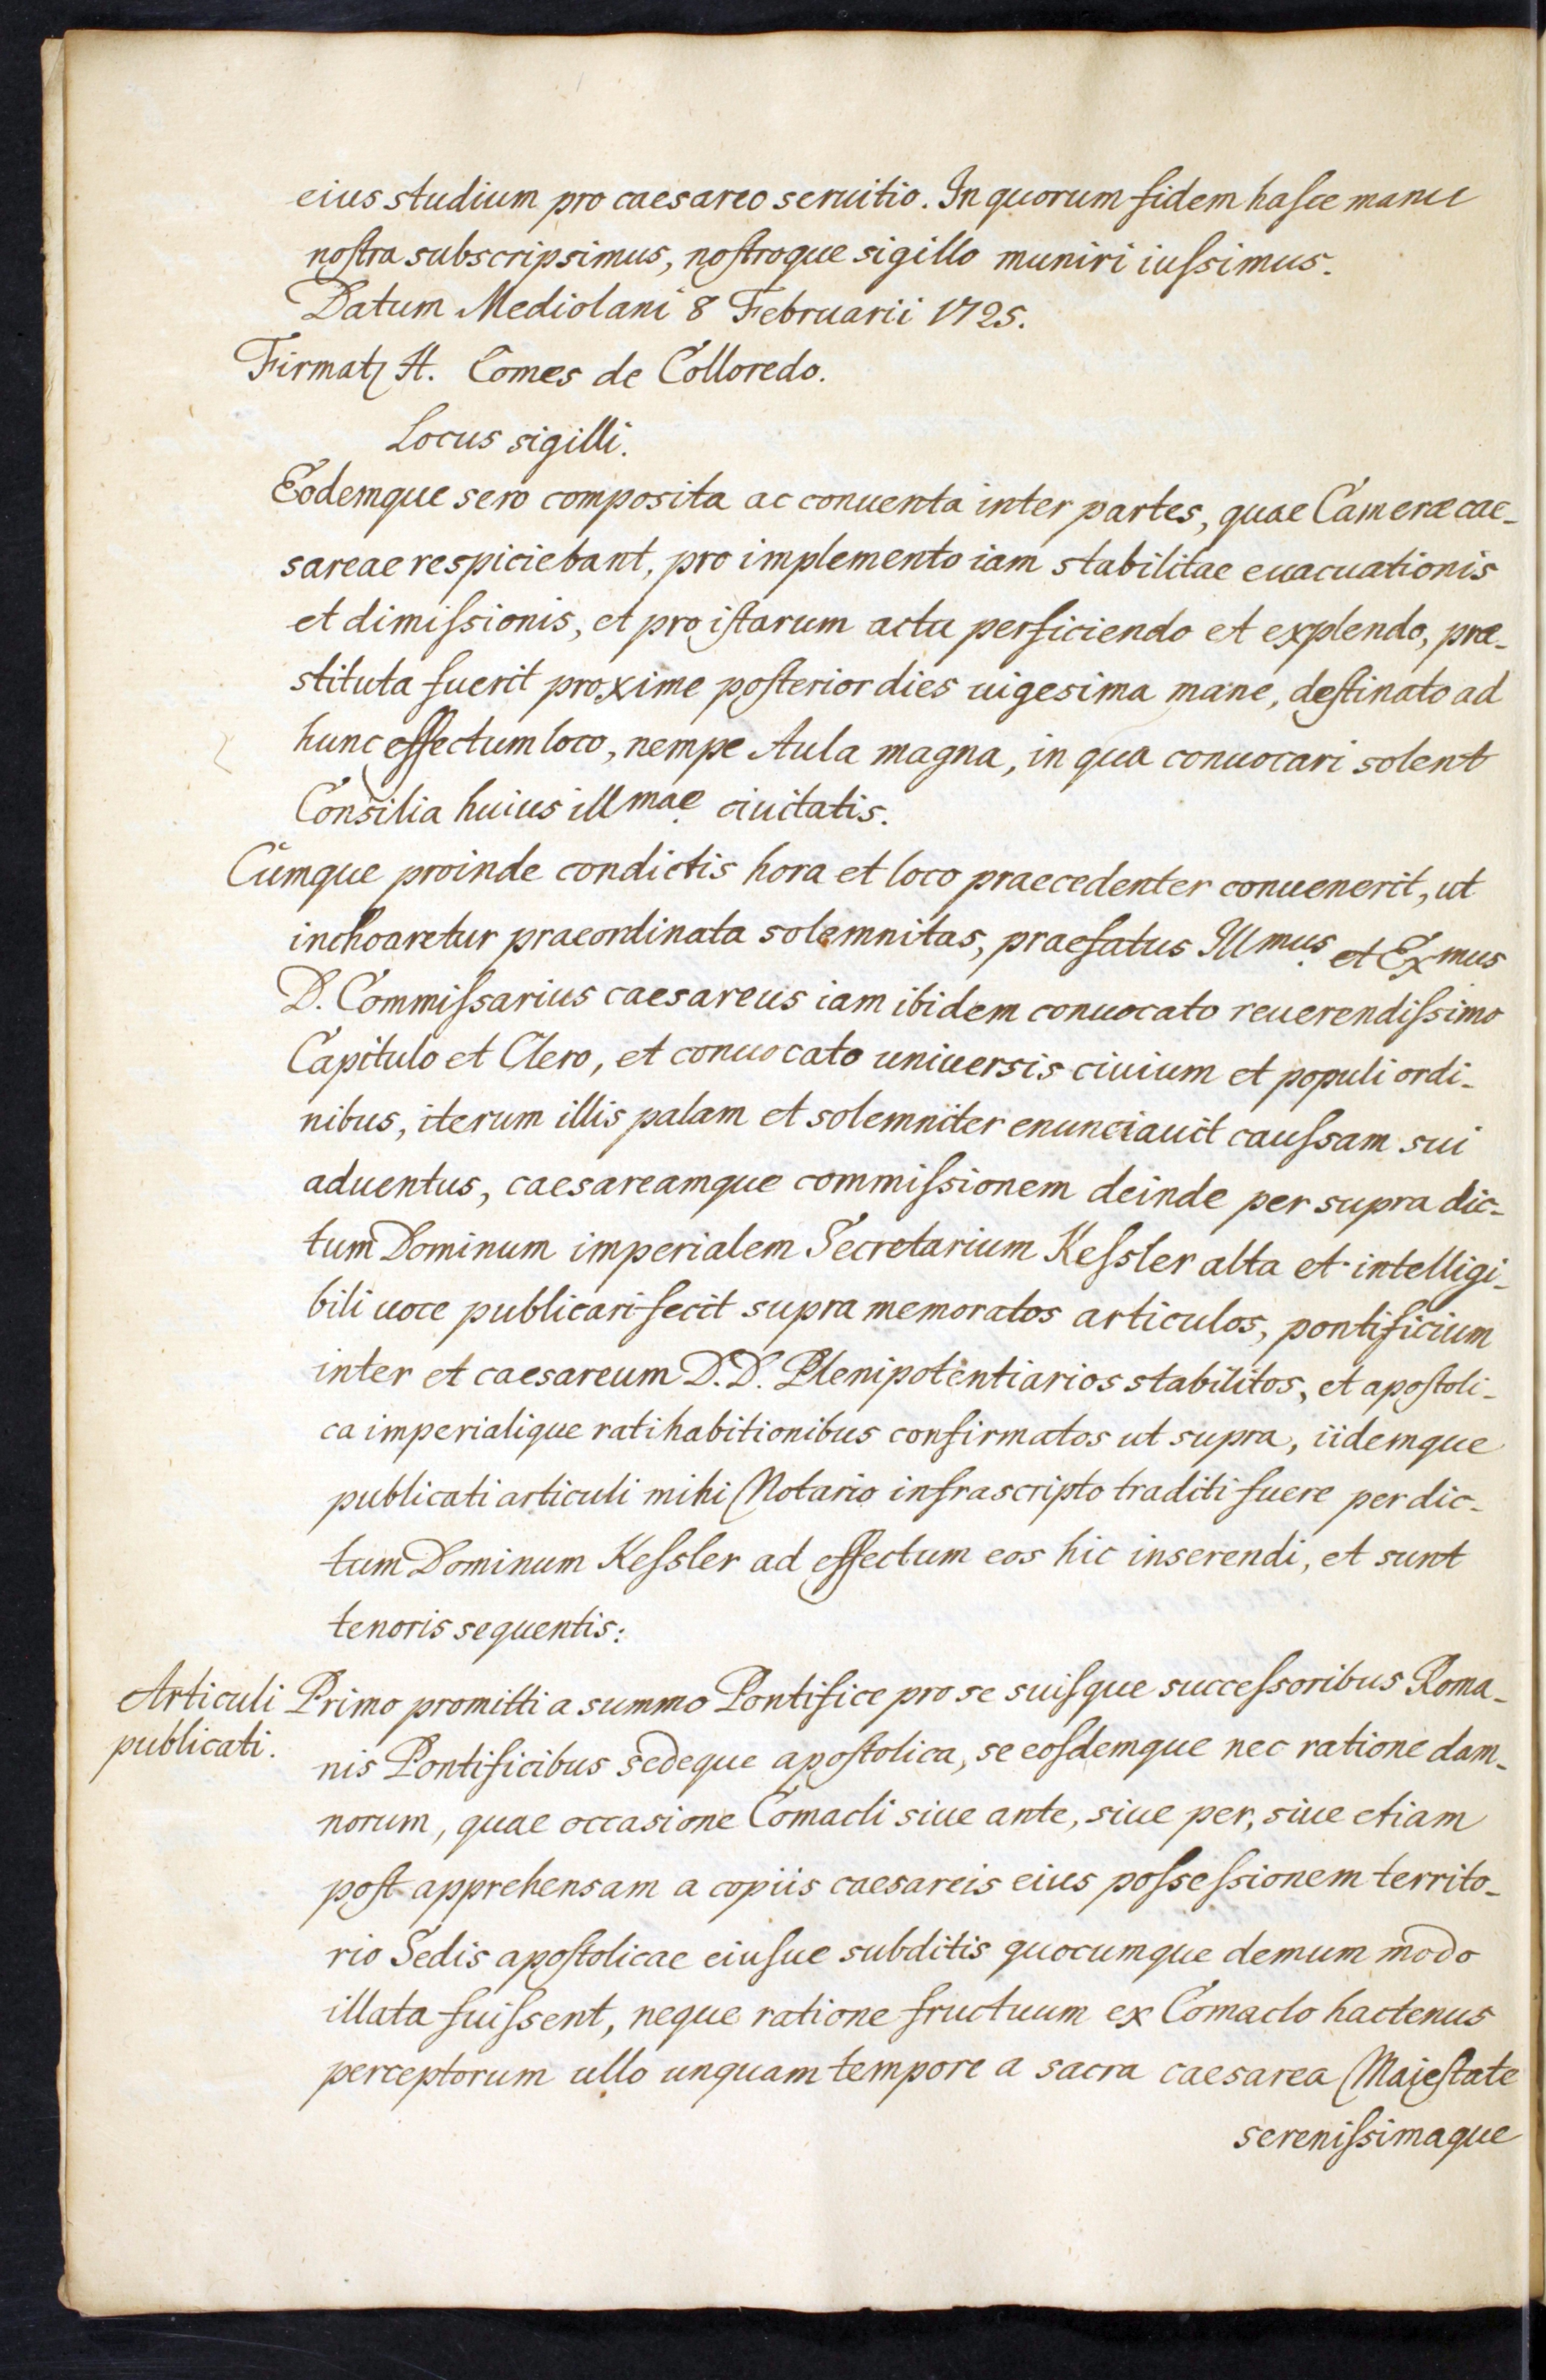 eius studium pro caesareo seruitio. In quorum fidem hasce manu
nostra subscripsimus, nostroque sigillo muniri iussimus.
Datum Mediolani 8 Februarii 1725.
Firmatꝫ H. Comes de Colloredo.
Locus sigilli.
Eodemque sero composita ac conuenta inter partes, quae Cameræ cae-
sareae respiciebant, pro implemento iam stabilitae euacuationis
et dimissionis, et pro istarum actu perficiendo et explendo, præ-
stituta fuerit proxime posterior dies uigesima mane, destinato ad
hunc effectum loco, nempe Aula magna, in qua conuocari solent
Consilia huius illmae ciuitatis.
Cumque proinde condictis hora et loco praecedenter conuenerit, ut
inchoaretur praeordinata solemnitas, praefatus Illmus et Exmus
D. Commissarius caesareus iam ibidem conuocato reuerendissimo
Capitulo et Clero, et conuocato uniuersis ciuium et populi ordi-
nibus, iterum illis palam et solemniter enunciauit caussam sui
aduentus, caesareamque commissionem deinde per supra dic-
tum Dominum imperialem Secretarium Kessler alta et intelligi-
bili uoce publicari fecit supra memoratos articulos, pontificium
inter et caesareum D.D. Plenipotentiarios stabilitos, et apostoli-
ca imperialique ratihabitionibus confirmatos ut supra, iidemque
publicati articuli mihi Notario infrascripto traditi fuere per dic-
tum Dominum Kessler ad effectum eos hic inserendi, et sunt
tenoris sequentis:
Articuli publicati.
Primo promitti a summo Pontifice pro se suisque successoribus Roma-
nis Pontificibus sedeque apostolica, se eosdemque nec ratione dam-
norum, quae occasione Comacli siue ante, siue per, siue etiam
post apprehensam a copiis caesareis eius possessionem territo-
rio Sedis apostolicae eiusue subditis quocumque demum modo
illata fuissent, neque ratione fructuum ex Comaclo hactenus
perceptorum ullo unquam tempore a sacra caesarea Majestate
serenissimaque